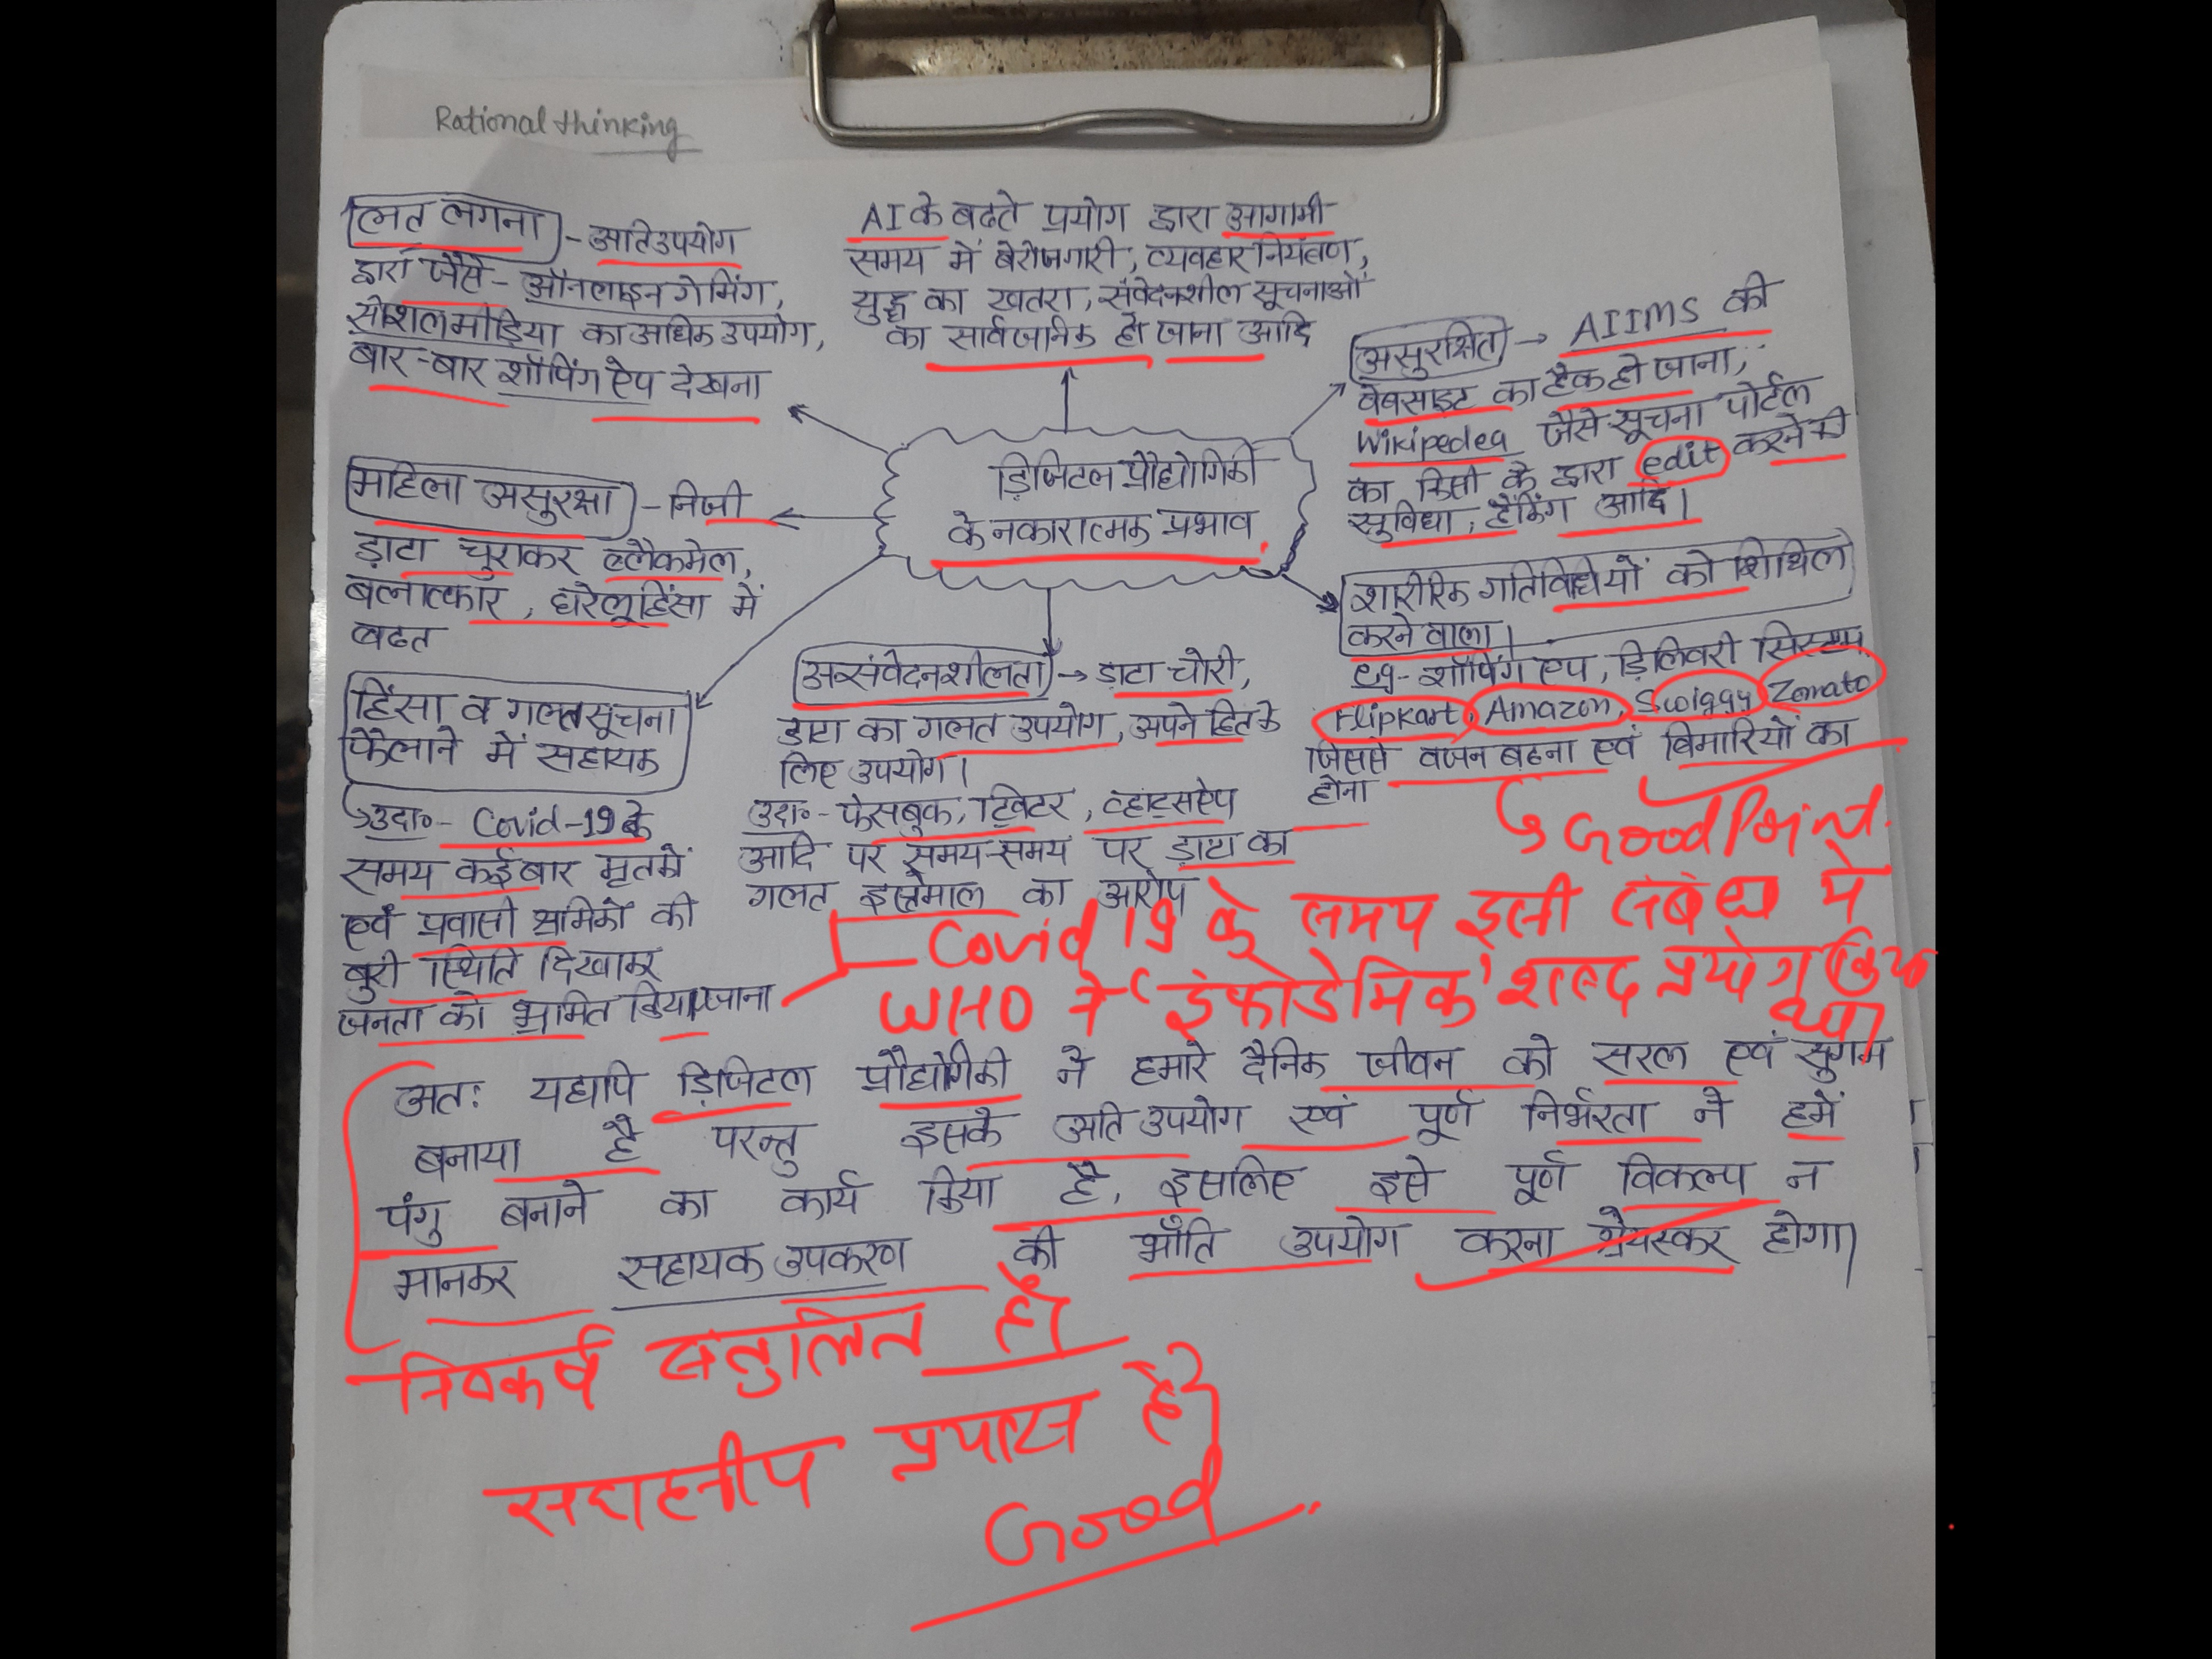 Rational thinking
लत लगना - अतिउपयोग
द्वारा जैसे - ऑनलाइन गेमिंग,
सोशल मीडिया का अधिक उपयोग,
बार-बार शॉपिंग ऐप देखना
AI के बढते प्रयोग द्वारा आगामी
समय में बेरोजगारी, व्यवहार नियंत्रण,
युद्ध का खतरा, संवेदनशील सूचनाओं
का सार्वजनिक हो जाना आदि
असुरक्षित → AIIMS की
वेबसाइट का हैक हो जाना,
Wikipedea जैसे सूचना पोर्टल
का किसी के द्वारा edit करने की
सुविधा, हैकिंग आदि।
डिजिटल प्रौद्योगिकी
के नकारात्मक प्रभाव
महिला असुरक्षा - निजी
ड़ाटा चुराकर ब्लैकमेल,
बलात्कार, घरेलू हिंसा में
बढत
शारीरिक गतिविधियों को शिथिल
करने वाला।
eg- शॉपिंग एप, ड़िलिवरी सिस्टम
Flipkart, Amazon, Swiggy Zomato
जिससे वजन बढना एवं बिमारियों का
होना
Good Point.
हिंसा व गलत सूचना
फैलाने में सहायक
उदा०- Covid-19 के
समय कई बार मृतकों
एवं प्रवासी श्रमिकों की
बुरी स्थिति दिखाकर
जनता को भ्रमित किया जाना
असंवेदनशीलता → ड़ाटा चोरी,
ड़ाटा का गलत उपयोग, अपने हित के
लिए उपयोग।
उदा०- फेसबुक, ट्विटर, व्हाट्सऐप
आदि पर समय-समय पर ड़ाटा का
गलत इस्तेमाल का आरोप
Covid 19 के समय इसी संबंध में
WHO ने 'इंफोडेमिक' शब्द प्रयोग किया
था।
अतः यद्यपि ड़िजिटल प्रौद्योगिकी ने हमारे दैनिक जीवन को सरल एवं सुगम
बनाया है परन्तु इसके अति उपयोग एवं पूर्ण निर्भरता ने हमें
पंगु बनाने का कार्य किया है, इसलिए इसे पूर्ण विकल्प न
मानकर सहायक उपकरण की भाँति उपयोग करना श्रेयस्कर होगा।
निष्कर्ष संतुलित है।
सराहनीय प्रयास है।
Good